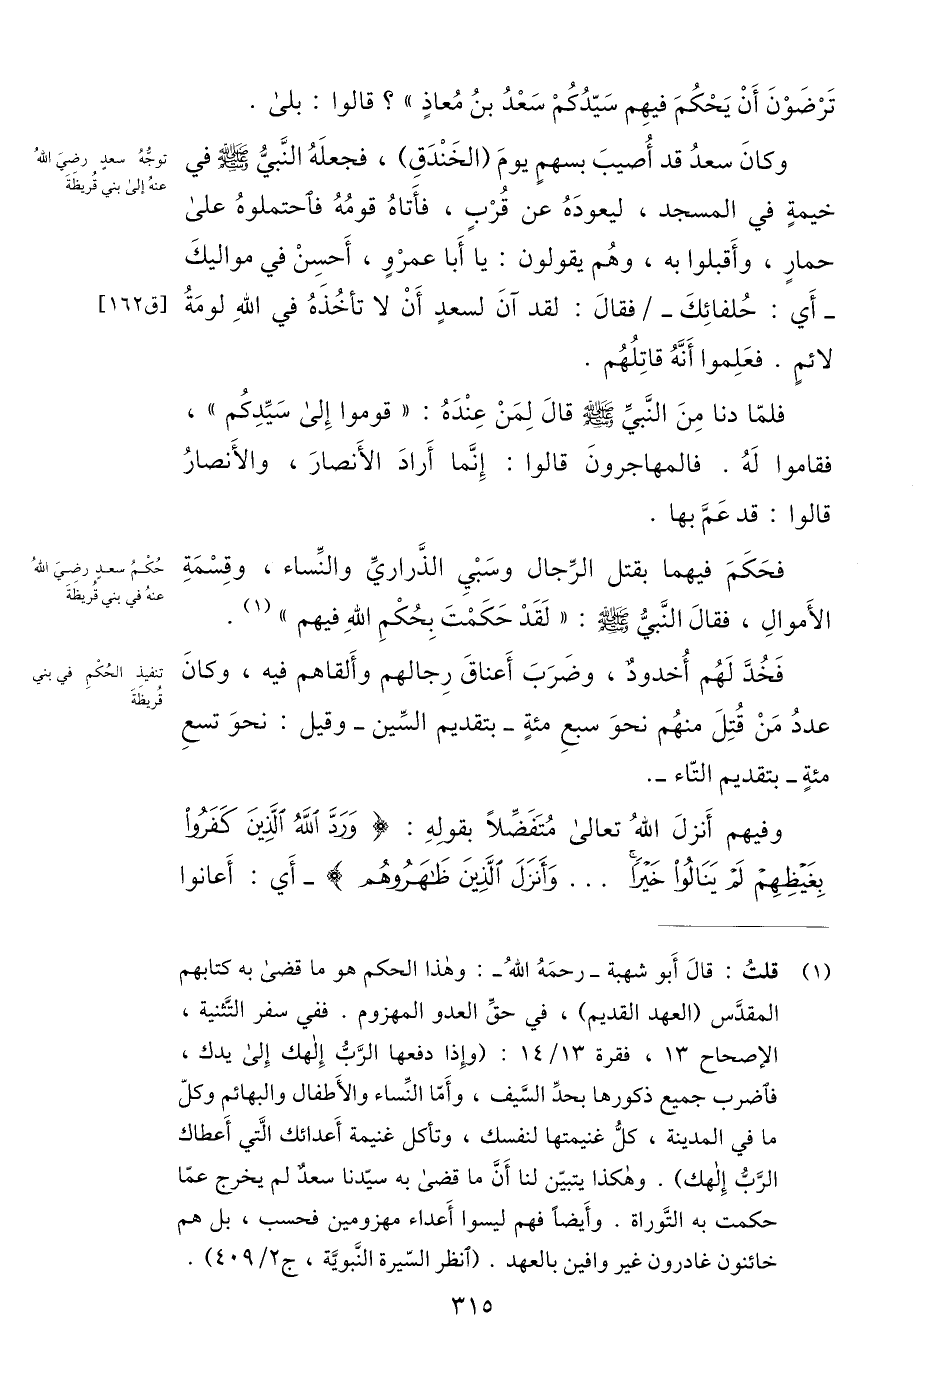 تَرْضَوْنَ أَنْ يَحْكُمَ فيهِم سَيِّدُكُمْ سَعْدُ بنُ مُعاذٍ » ؟ قالوا : بلىٰ .
وكانَ سعدُ قد أُصيبَ بسهمٍ يومَ (الخَنْدَقِ) ، فجعلَهُ النَّبيُّ ﷺ في
توجُّهُ سعدٍ رضيَ اللهُ
عنهُ إلىٰ بني قُريظَةَ
خيمةٍ في المسجد ، ليعودَهُ عن قُرْبٍ ، فأَتاهُ قومُهُ فٱحتملوهُ علىٰ
حمارٍ ، وأَقبلوا به ، وهُم يقولون : يا أَبا عمرْوٍ ، أَحسِنْ في مواليكَ
ـ أَي : حُلفائِكَ ـ / فقالَ : لقد آنَ لسعدٍ أَنْ لا تأخُذَهُ في اللهِ لومَةُ
[ق١٦٢]
لائمٍ . فعَلِموا أَنَّهُ قاتِلُهُم .
فلمّا دنا مِنَ النَّبيِّ ﷺ قالَ لِمَنْ عِنْدَهُ : « قوموا إِلىٰ سَيِّدِكُم » ،
فقاموا لَهُ . فالمهاجرونَ قالوا : إِنَّما أَرادَ الأَنصارَ ، والأَنصارُ
قالوا : قد عَمَّ بها .
فحَكَمَ فيهما بقتل الرِّجال وسَبْيِ الذَّراريِّ والنِّساء ، وقِسْمَةِ
حُكْمُ سعدٍ رضيَ اللهُ
عنهُ في بني قُريظَةَ
الأَموالِ ، فقالَ النَّبيُّ ﷺ : « لَقَدْ حَكَمْتَ بِحُكْمِ اللهِ فيهم » (١) .
فَخُدَّ لَهُم أُخدودٌ ، وضَرَبَ أَعناقَ رِجالهم وأَلقاهم فيه ، وكانَ
تنفيذِ الحُكْمِ في بني
قُريظَةَ
عددُ مَنْ قُتِلَ منهُم نحوَ سبعِ مئةٍ ـ بتقديم السِّين ـ وقيل : نحوَ تسعِ
مئةٍ ـ بتقديم التّاء ـ.
وفيهم أَنزلَ اللهُ تعالىٰ مُتَفَضِّلاً بقولِهِ : ﴿ وَرَدَّ ٱللَّهُ ٱلَّذِينَ كَفَرُوا۟
بِغَيْظِهِمْ لَمْ يَنَالُوا۟ خَيْرًا ۚ ... وَأَنزَلَ ٱلَّذِينَ ظَـٰهَرُوهُم ﴾ ـ أَي : أَعانوا
(١) قلتُ : قالَ أَبو شهبة ـ رحمَهُ اللهُ ـ : وهٰذا الحكم هو ما قضىٰ به كتابهم
المقدَّس (العهد القديم) ، في حقِّ العدو المهزوم . ففي سفر التَّثنية ،
الإصحاح ١٣ ، فقرة ١٤/١٣ : (وإِذا دفعها الرَّبُّ إِلٰهك إِلىٰ يدك ،
فٱضرب جميع ذكورها بحدِّ السَّيف ، وأَمّا النِّساء والأَطفال والبهائم وكلّ
ما في المدينة ، كلُّ غنيمتها لنفسك ، وتأكل غنيمة أَعدائك الَّتي أَعطاك
الرَّبُّ إِلٰهك) . وهٰكذا يتبيّن لنا أَنَّ ما قضىٰ به سيّدنا سعدٌ لم يخرج عمّا
حكمت به التَّوراة . وأَيضاً فهم ليسوا أَعداء مهزومين فحسب ، بل هم
خائنون غادرون غير وافين بالعهد . (ٱنظر السّيرة النَّبويَّة ، ج٢/ ٤٠٩) .
٣١٥